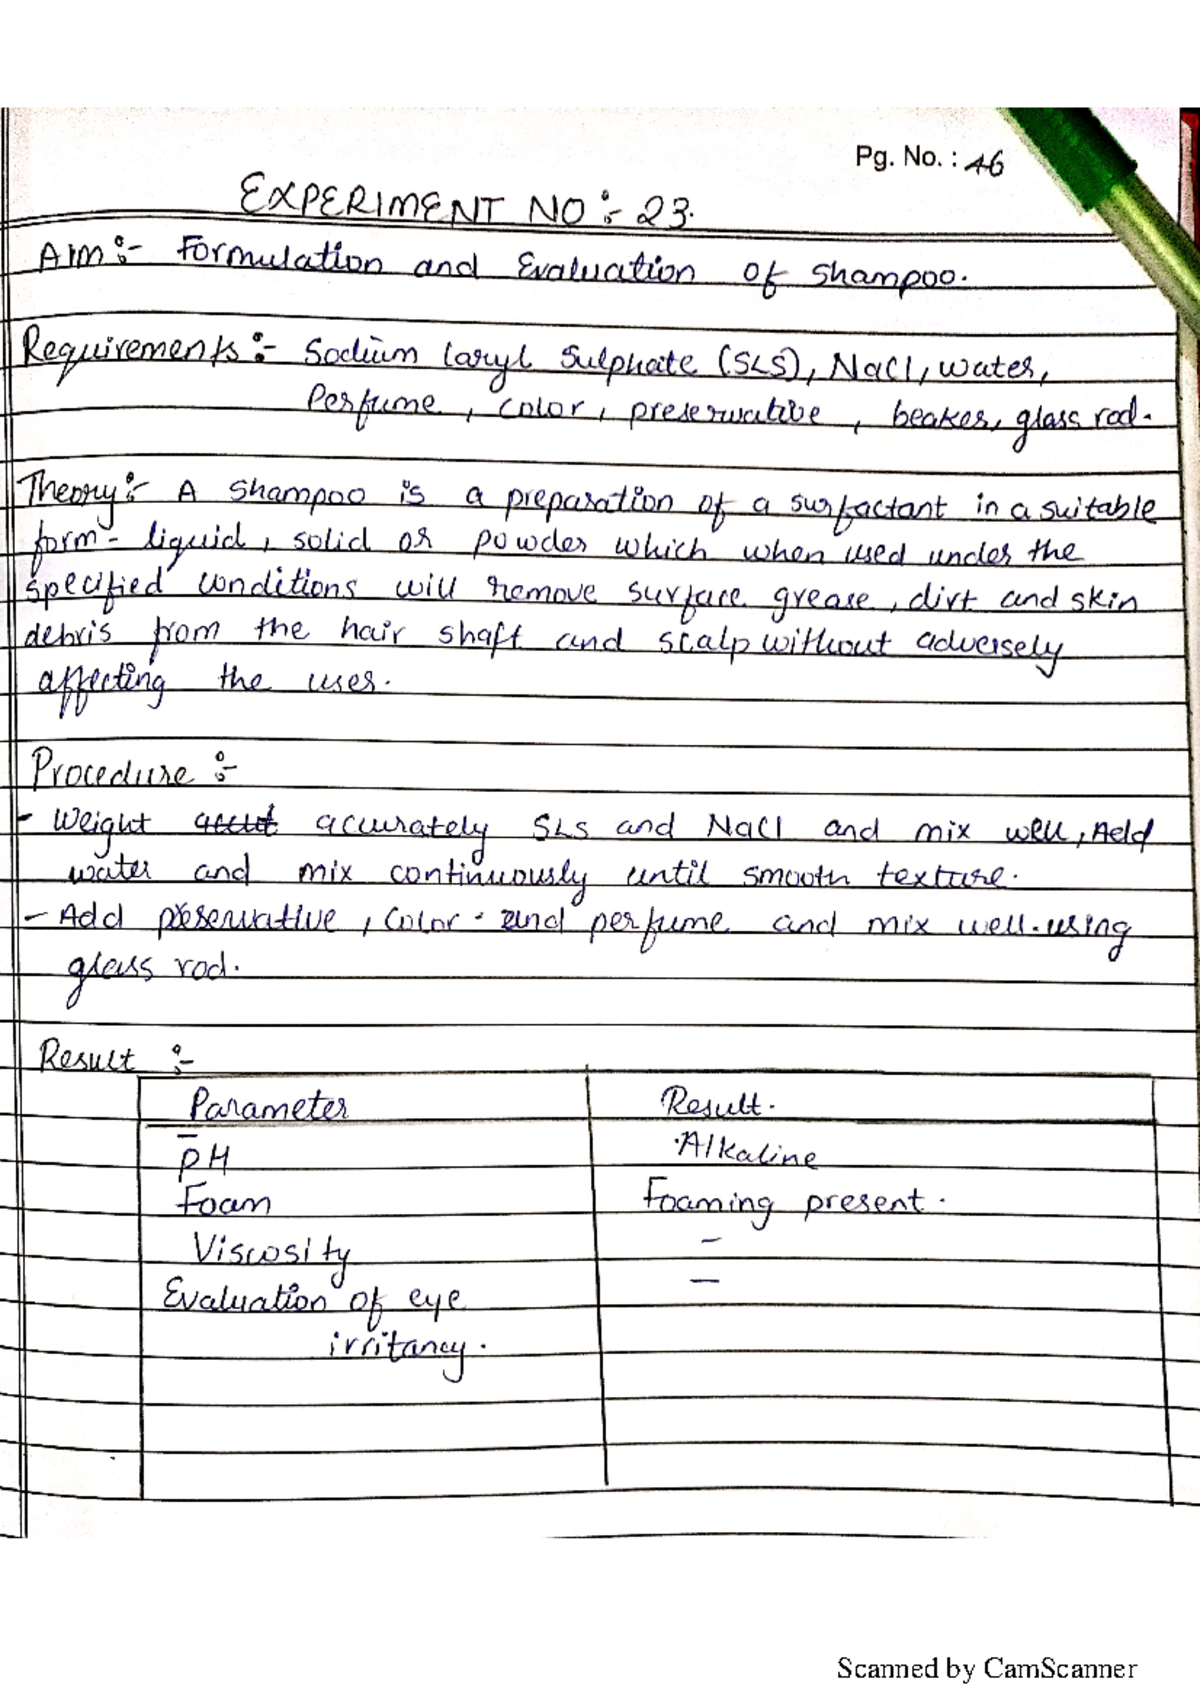 Pg. No. : 46
EXPERIMENT NO :- 23.
AIM :- Formulation and Evaluation of shampoo.
Requirements :- Sodium laryl sulphate (SLS), NaCl, water,
Perfume, color, preservative, beaker, glass rod.
Theory :- A shampoo is a preparation of a surfactant in a suitable
form - liquid, solid or powder which when used under the
specified conditions will remove surface grease, dirt and skin
debris from the hair shaft and scalp without adversely
affecting the user.
Procedure :-
- Weight accut accurately SLS and NaCl and mix well, Add
water and mix continuously until smooth texture.
- Add preservative, color and perfume and mix well. using
glass rod.
Result :-
Parameter Result.
pH Alkaline
Foam Foaming present.
Viscosity –
Evaluation of eye –
irritancy.
Scanned by CamScanner